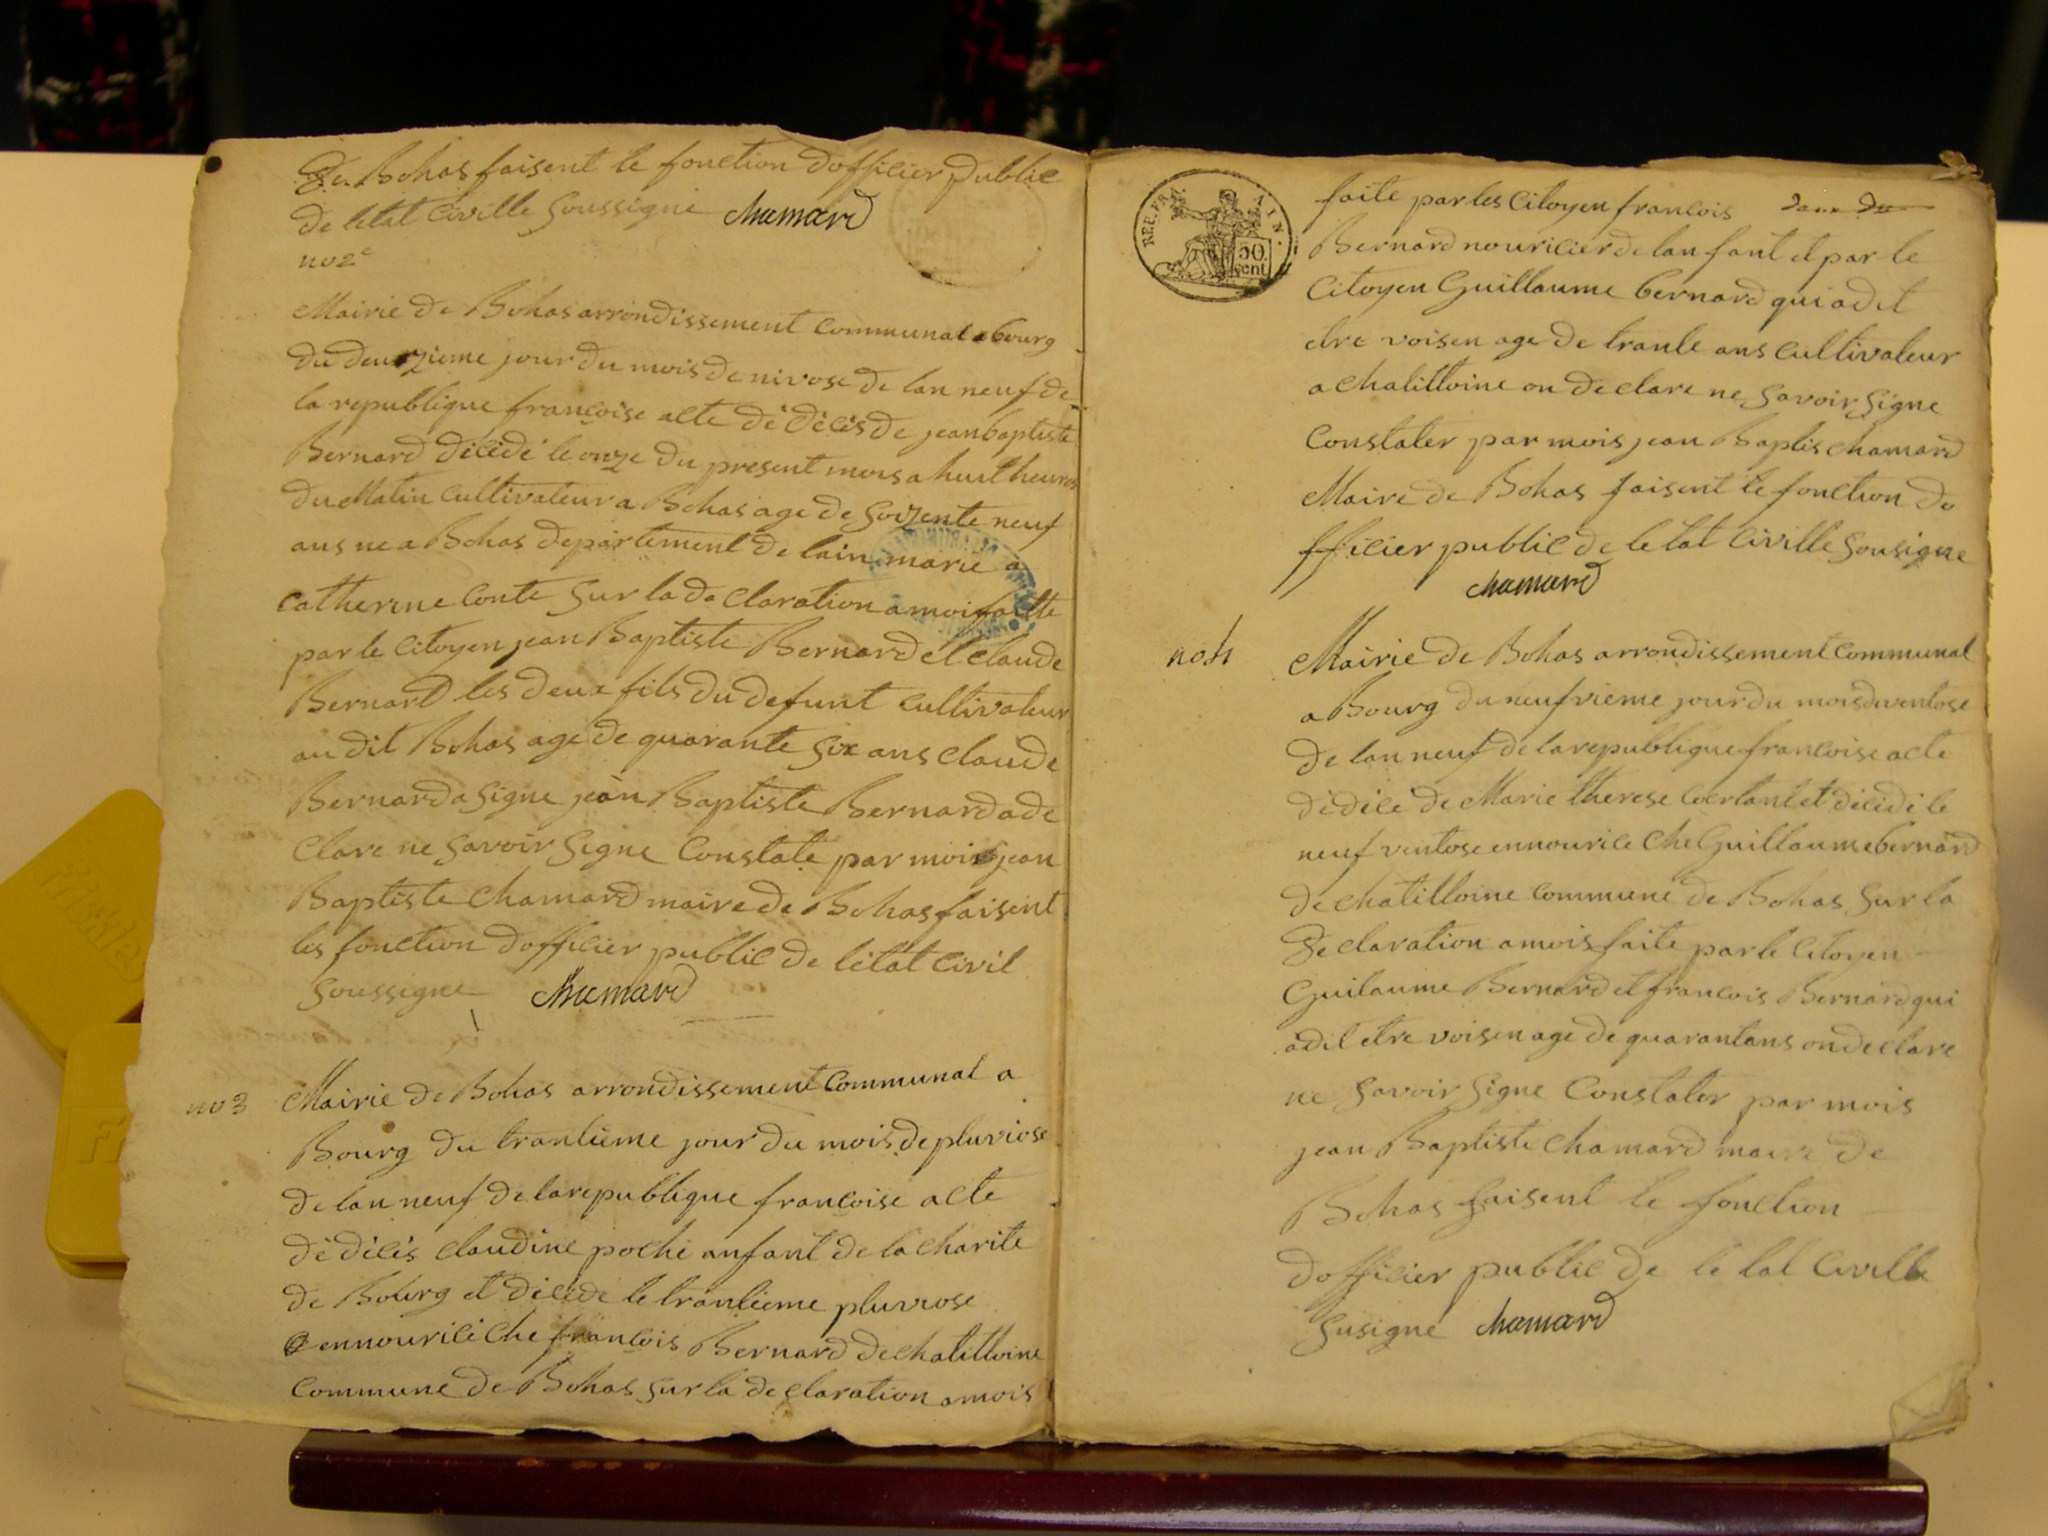 De Bohas faisent le fonction dofficier public
de letat Civille Soussigne chamard
no 2e
Mairie de Bohas arrondissement Communal a bourg
du deuxzieme jour du mois de nivose de lan neuf de
la republique francoise acte de décés de jean baptiste
Bernard décédé le onze du present mois a huit heures
du Matin Cultivateur a Bohas age de Soizente neuf
ans ne a Bohas departement de lain marie a
Catherine Conte Sur la de claration a moi faitte
par le Citoyen jean Baptiste Bernard et claude
Bernard les deux fils du defunt Cultivateur
au dit Bohas age de quarante Six ans claude
Bernard a Signe jean Baptiste Bernard a de
Clare ne Savoir Signe Constaté par mois jean
Baptiste chamard maire de Bohas faisent
les fonction dofficier public de létat Civil
Soussigne chamard
no 3 Mairie de Bohas arrondissement Communal a
Bourg du trantieme jour du mois de pluviose
de lan neuf de la republique francoise acte
dé décés claudine poché anfant de la charite
de Bourg et décéde le trantieme pluviose
ennourici che francois Bernard de chatilloine
Commune de Bohas sur la de claration a mois
REP. FRA. 50 cent
faite par les Citoyen francois
Bernard nouricier de lan fant et par le
Citoyen Guillaume bernard qui a dit
etre voisen age de trante ans cultivateur
a chatilloine on de clare ne Savoir Signe
Constater par mois jean Baptis chamard
Maire de Bohas faisent le fonction do
fficier public de le tat Civille Sousigne
chamard
no 4 Mairie de Bohas arrondissement Communal
a Bourg du neufvieme jour du mois de ventose
de lan neuf de la republique francoise acte
dé décé de Marie therese et décédé le
neuf ventose ennourice che Guillaume bernard
de chatilloine commune de Bohas Sur la
De claration a mois faite par le Citoyen
Guilaume Bernard et francois Bernard qui
a dit etre voisen age de quarantans on de clare
ne Savoir Signe Constater par mois
jean Baptiste chamard maire de
Bohas faisent le fonction
dofficier public de le tat Civille
Susigné chamard